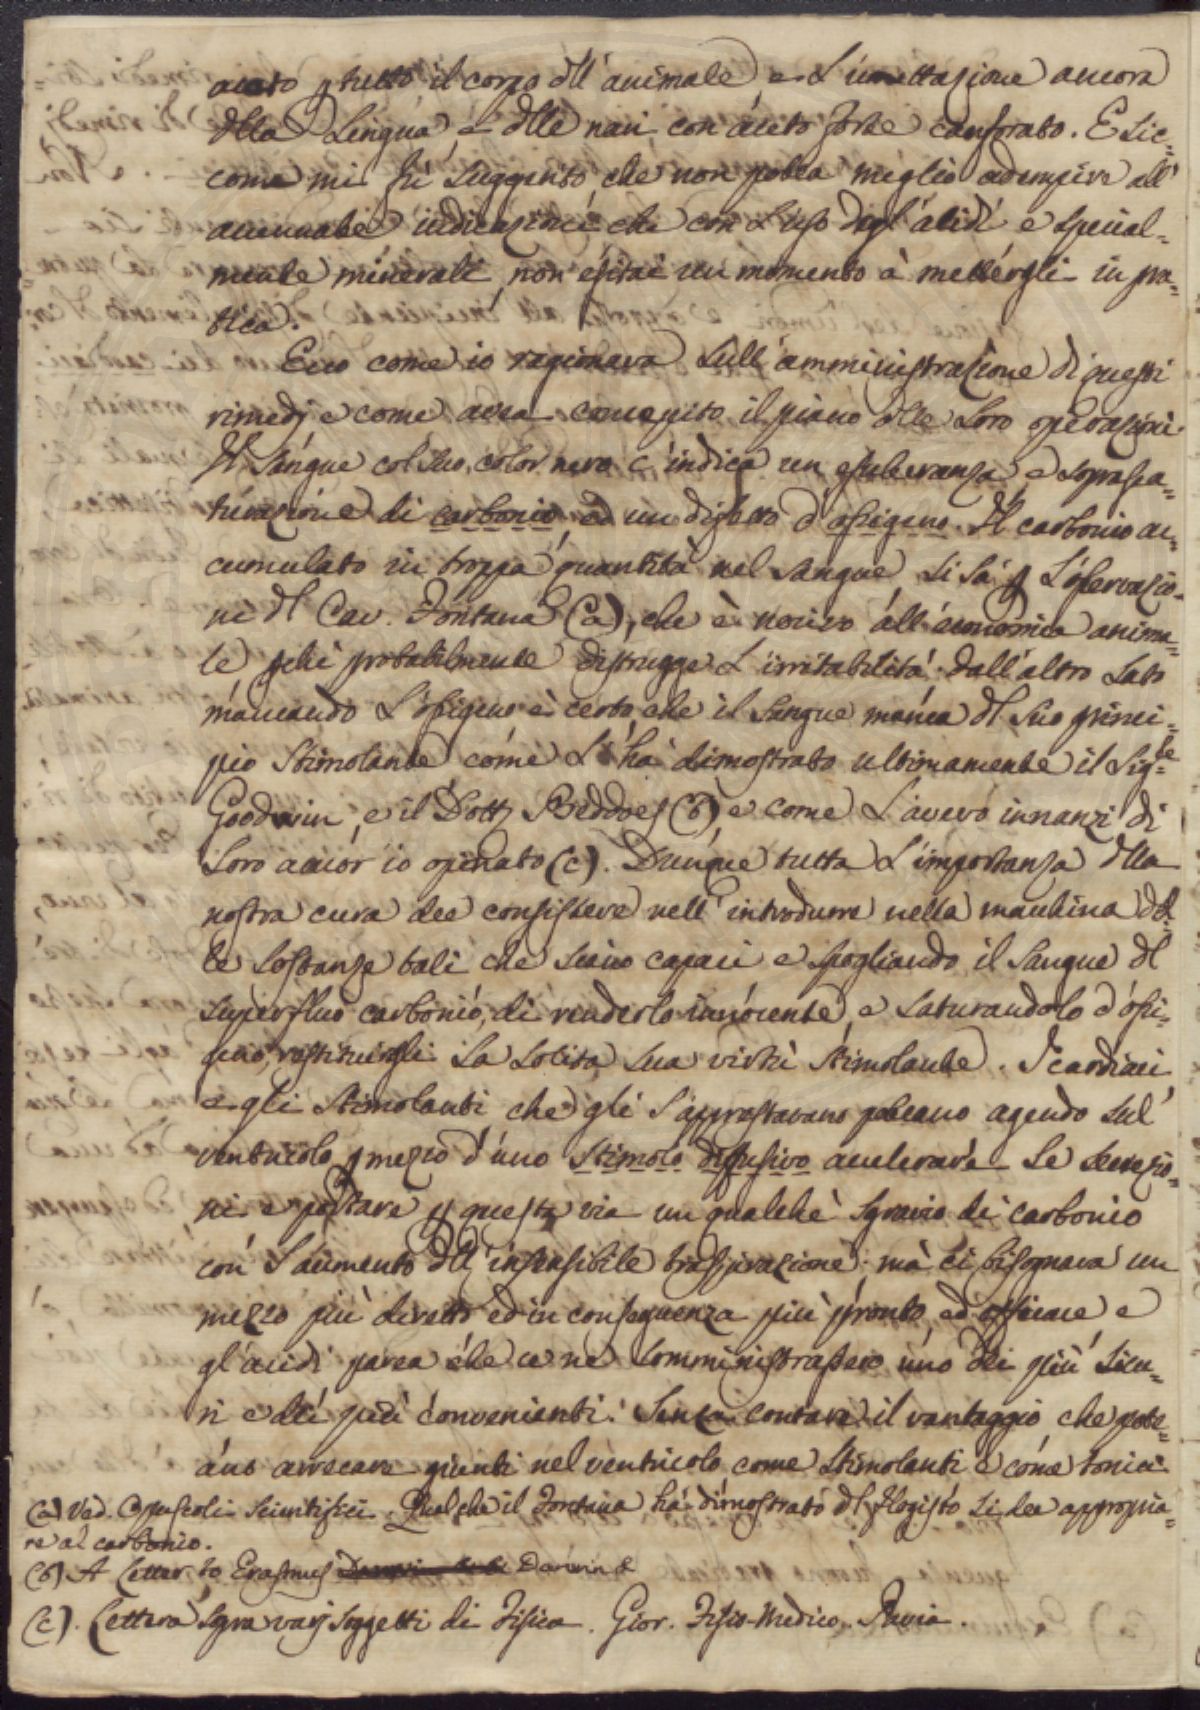 aceto p tutto il corpo dll'animale, e l'umettazione ancora
dlla Lingua, e dlle nari con aceto forte canforato. E sic=
come mi fù suggerito, che non potea meglio adempire all'
accennate indicazioni che con l'uso degl'acidi e special=
mente minerali, non esitai un momento à mettergli in pra=
tica.
Ecco come io ragionava sull'amministrazione di questi
rimedj e come avea concepito il piano dlle loro operazioni.
Il Sangue col suo color nero c'indica un esuberanza e soprasa=
turazione di carbonio, ed un difetto d'ossigeno. Il carbonio ac=
cumulato in troppa quantità nel sangue si sà p l'osservazio=
ni dl Cav. Fontana (a), che è nocivo all'economia anima=
le pchè probabilmente distrugge l'irritabilità: dall'altro lato
mancando l'ossigeno è certo che il sangue manca dl suo princi=
pio stimolante come l'hà dimostrato ultimamente il Sig:re
Goodwin, e il Dott. Beddoes (b) e come l'avevo innanzi di
loro ancor io opinato (c). Dunque tutta l'importanza dlla
nostra cura dee consistere nell'introdurre nella macchina del=
le sostanze tali che sieno capaci e spogliando il sangue dl
superfluo carbonio, di renderlo innocente, e saturandolo d'ossi=
geno, restituirgli la solita sua virtù stimolante. I cardiaci
e gli stimolanti che gli s'apprestavano poteano agendo sul
ventricolo p mezzo d'uno stimolo diffusivo accelerare le secrezio=
ni e portare p questa via un qualche sgravio di carbonio
con l'aumento dll'insensibile traspirazione: mà ci bisognava un
mezzo più diretto ed in conseguenza più pronto, ed efficace e
gl'acidi parea che ce ne somministrassero uno dei più sicu=
ri e dei più convenienti. Senza contare il vantaggio che pote=
ano arrecare giunti nel ventricolo come stimolanti e come tonici
(a) Ved. Opuscoli Scientifici. Quel che il Fontana hà dimostrato dl flogisto si dee appropria=
re al carbonio.
(b) A Letter to Erasmus Darwin &
(c). Lettera sopra varj soggetti di Fisica. Gior. Fisio-Medico. Pavia.